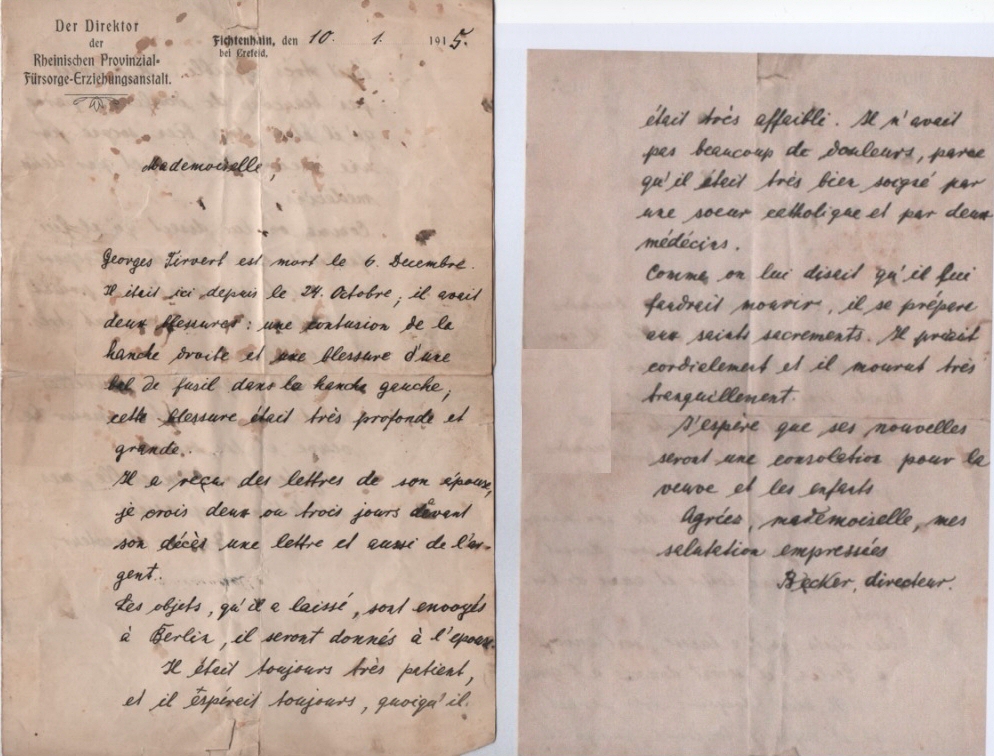 Der Direktor
der
Rheinischen Provinzial-
Fürsorge-Erziehungsanstalt.
Fichtenhain, den 10. 1. 1915.
bei Crefeld.
Mademoiselle,
Georges Tirvert est mort le 6. Decembre.
Il était ici depuis le 24. Octobre; il avait
deux blessures: une contusion de la
hanche droite et une blessure d'une
bal de fusil dans la hanche gauche;
cette blessure était très profonde et
grande.
Il a reçu des lettres de son épouse,
je crois deux ou trois jours devant
son décès une lettre et aussi de l'ar-
gent.
Les objets, qu'il a laissé, sont envoyés
à Berlin, il seront donnés à l'epouse.
Il était toujours très patient,
et il espérait toujours, quoiqu'il
était très affaibli. Il n'avait
pas beaucoup de douleurs, parce
qu'il était très bien soigné par
une soeur catholique et par deux
médécins.
Comme on lui disait qu'il lui
faudrait mourir, il se prépare
aux saints sacrements. Il priait
cordialement et il mourut très
tranquillement.
J'espère que ses nouvelles
seront une consolation pour la
veuve et les enfants
Agriez, mademoiselle, mes
salutation empressées
Becker, directeur.